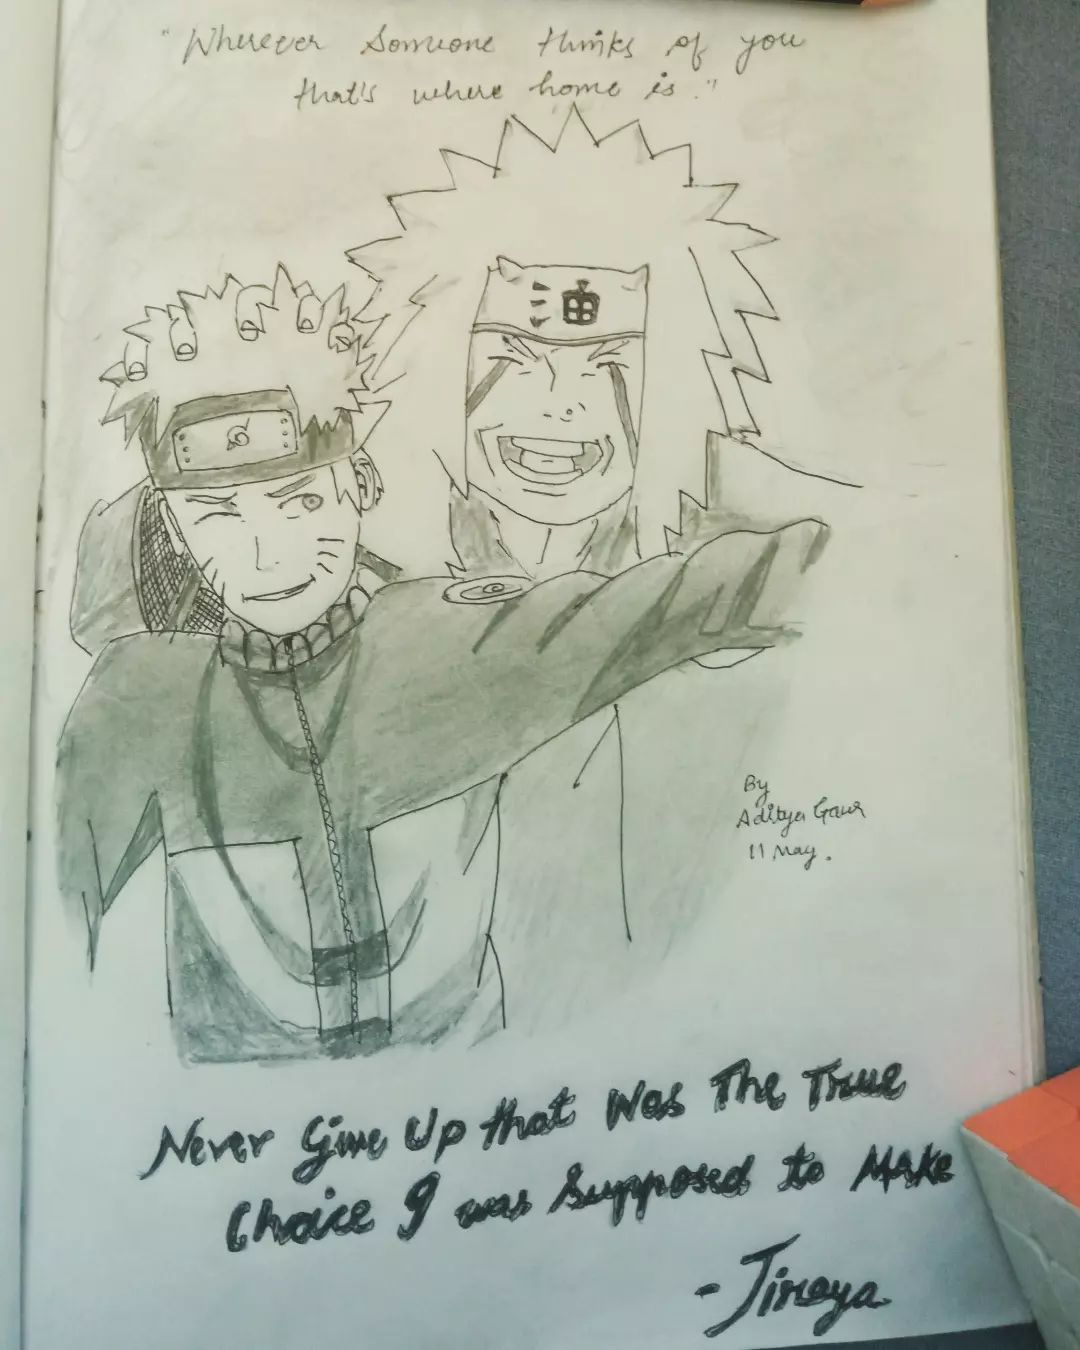 "Wherever Someone thinks of you
that's where home is."
油
By
Aditya Gaur
11 May.
Never Give Up that Was The True
Choice I was Supposed to Make
- Jiraya